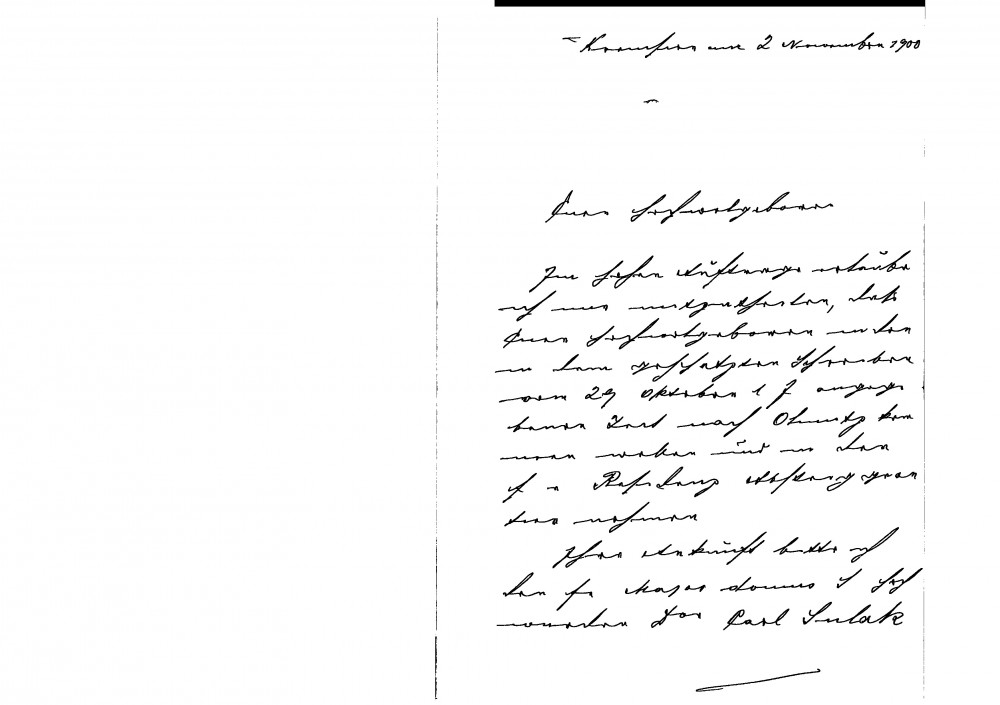 Kremsier am 2 November 1900
Euer Hochwolgeboren
Im hohen Auftrage erlaube
ich mir mitzutheilen, daß
Euer Hochwolgeboren in der
in dem geschätzten Schreiben
vom 29 Oktober l J angege
benen Zeit nach Olmütz kom
men wollen und in der
f e Residenz Absteigquar
tier nehmen
Ihre Ankunft bitte ich
dem fe Major domus S Hoch
würden Dor Carl Sulak